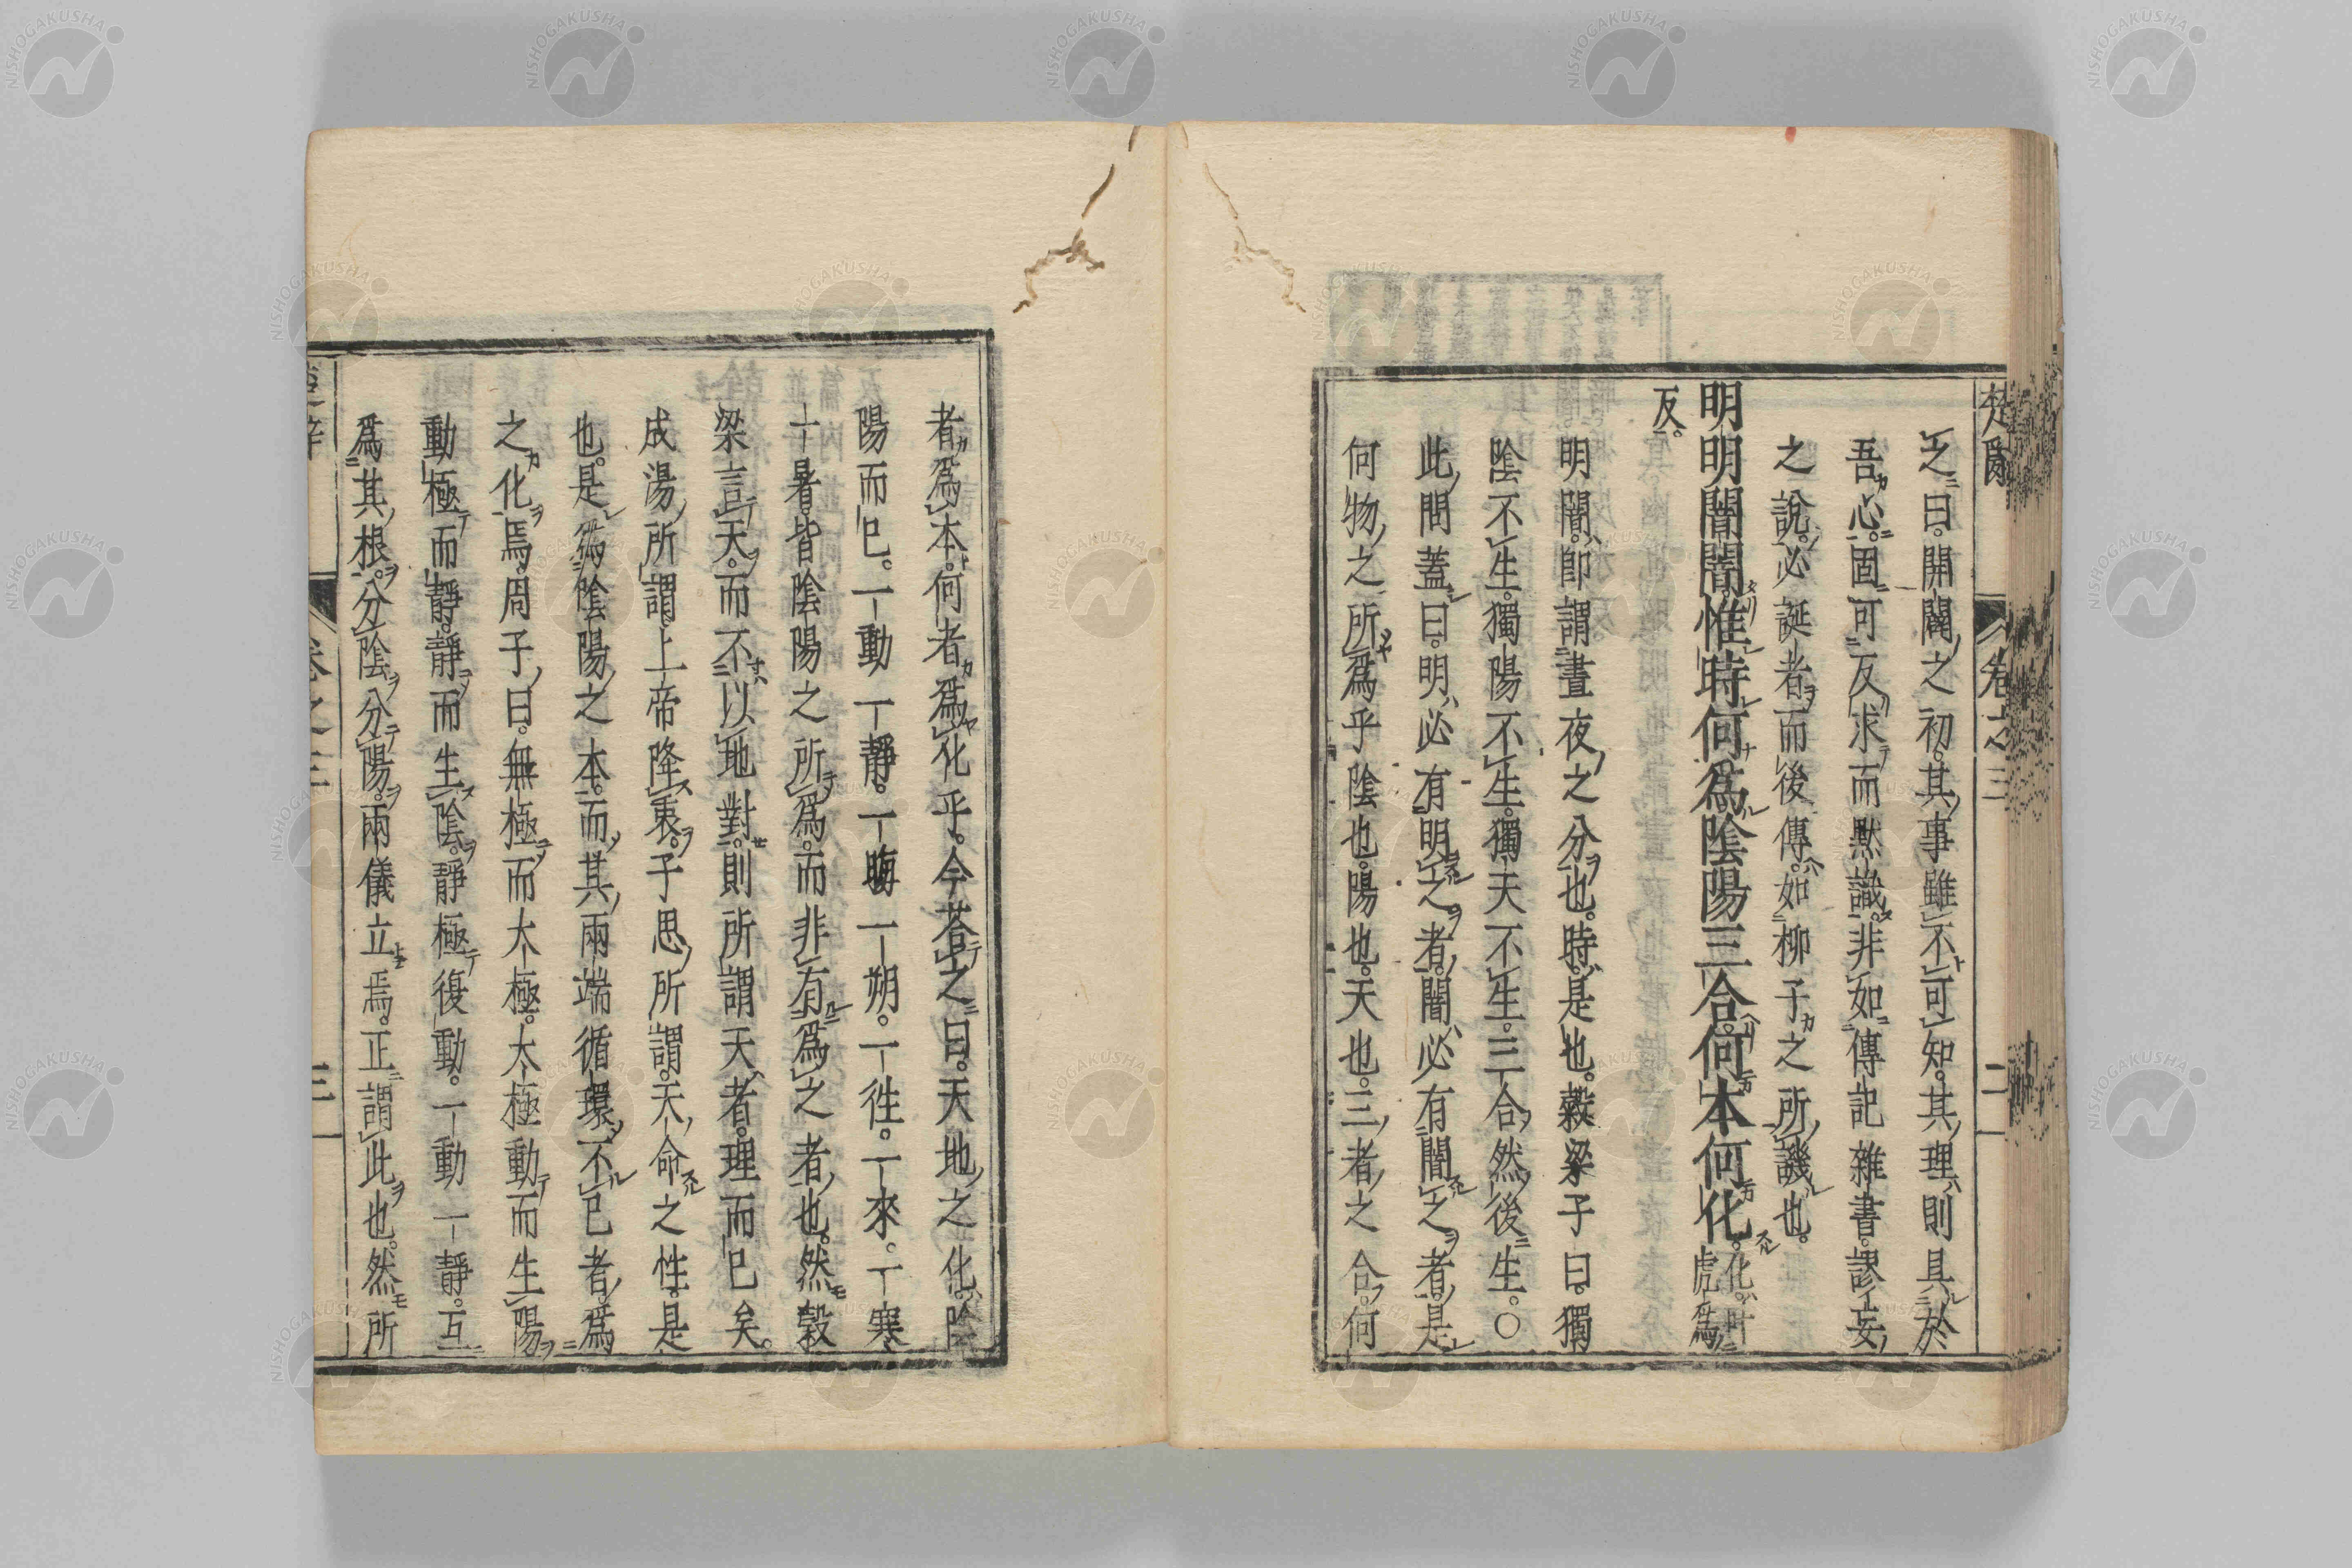 之曰。開闢之初。其事雖不可知。其理則具於
吾心。固可反求而默識。非如傳記雜書。謬妄
之說。必誕者而後傳。如柳子之所譏也。
明明闇闇惟時何爲陰陽三合。何本何化。化叶虎爲
反。
明闇。卽謂晝夜之分也。時。是也。穀梁子曰。獨
陰不生。獨陽不生。獨天不生。三合然後生。○
此問蓋曰。明必有明之者。闇必有闇之者。是
何物之所爲乎陰也。陽也。天也。三者之合。何
者爲本。何者爲化乎。今荅之曰。天地之化。陰
陽而已。一動一靜。一晦一朔。一徃。一來。一寒
一暑。皆陰陽之所爲。而非有爲之者也。然穀
梁言天。而不以地對。則所謂天者。理而已矣。
成湯所謂上帝降衷。子思所謂。天命之性。是
也。是爲陰陽之本。而其兩端循環不已者。爲
之化焉。周子曰。無極而太極。太極動而生陽。
動極而靜。靜而生陰。靜極復動。一動一靜。互
爲其根。分陰分陽。兩儀立焉。正謂此也。然所
卷之三
二
三